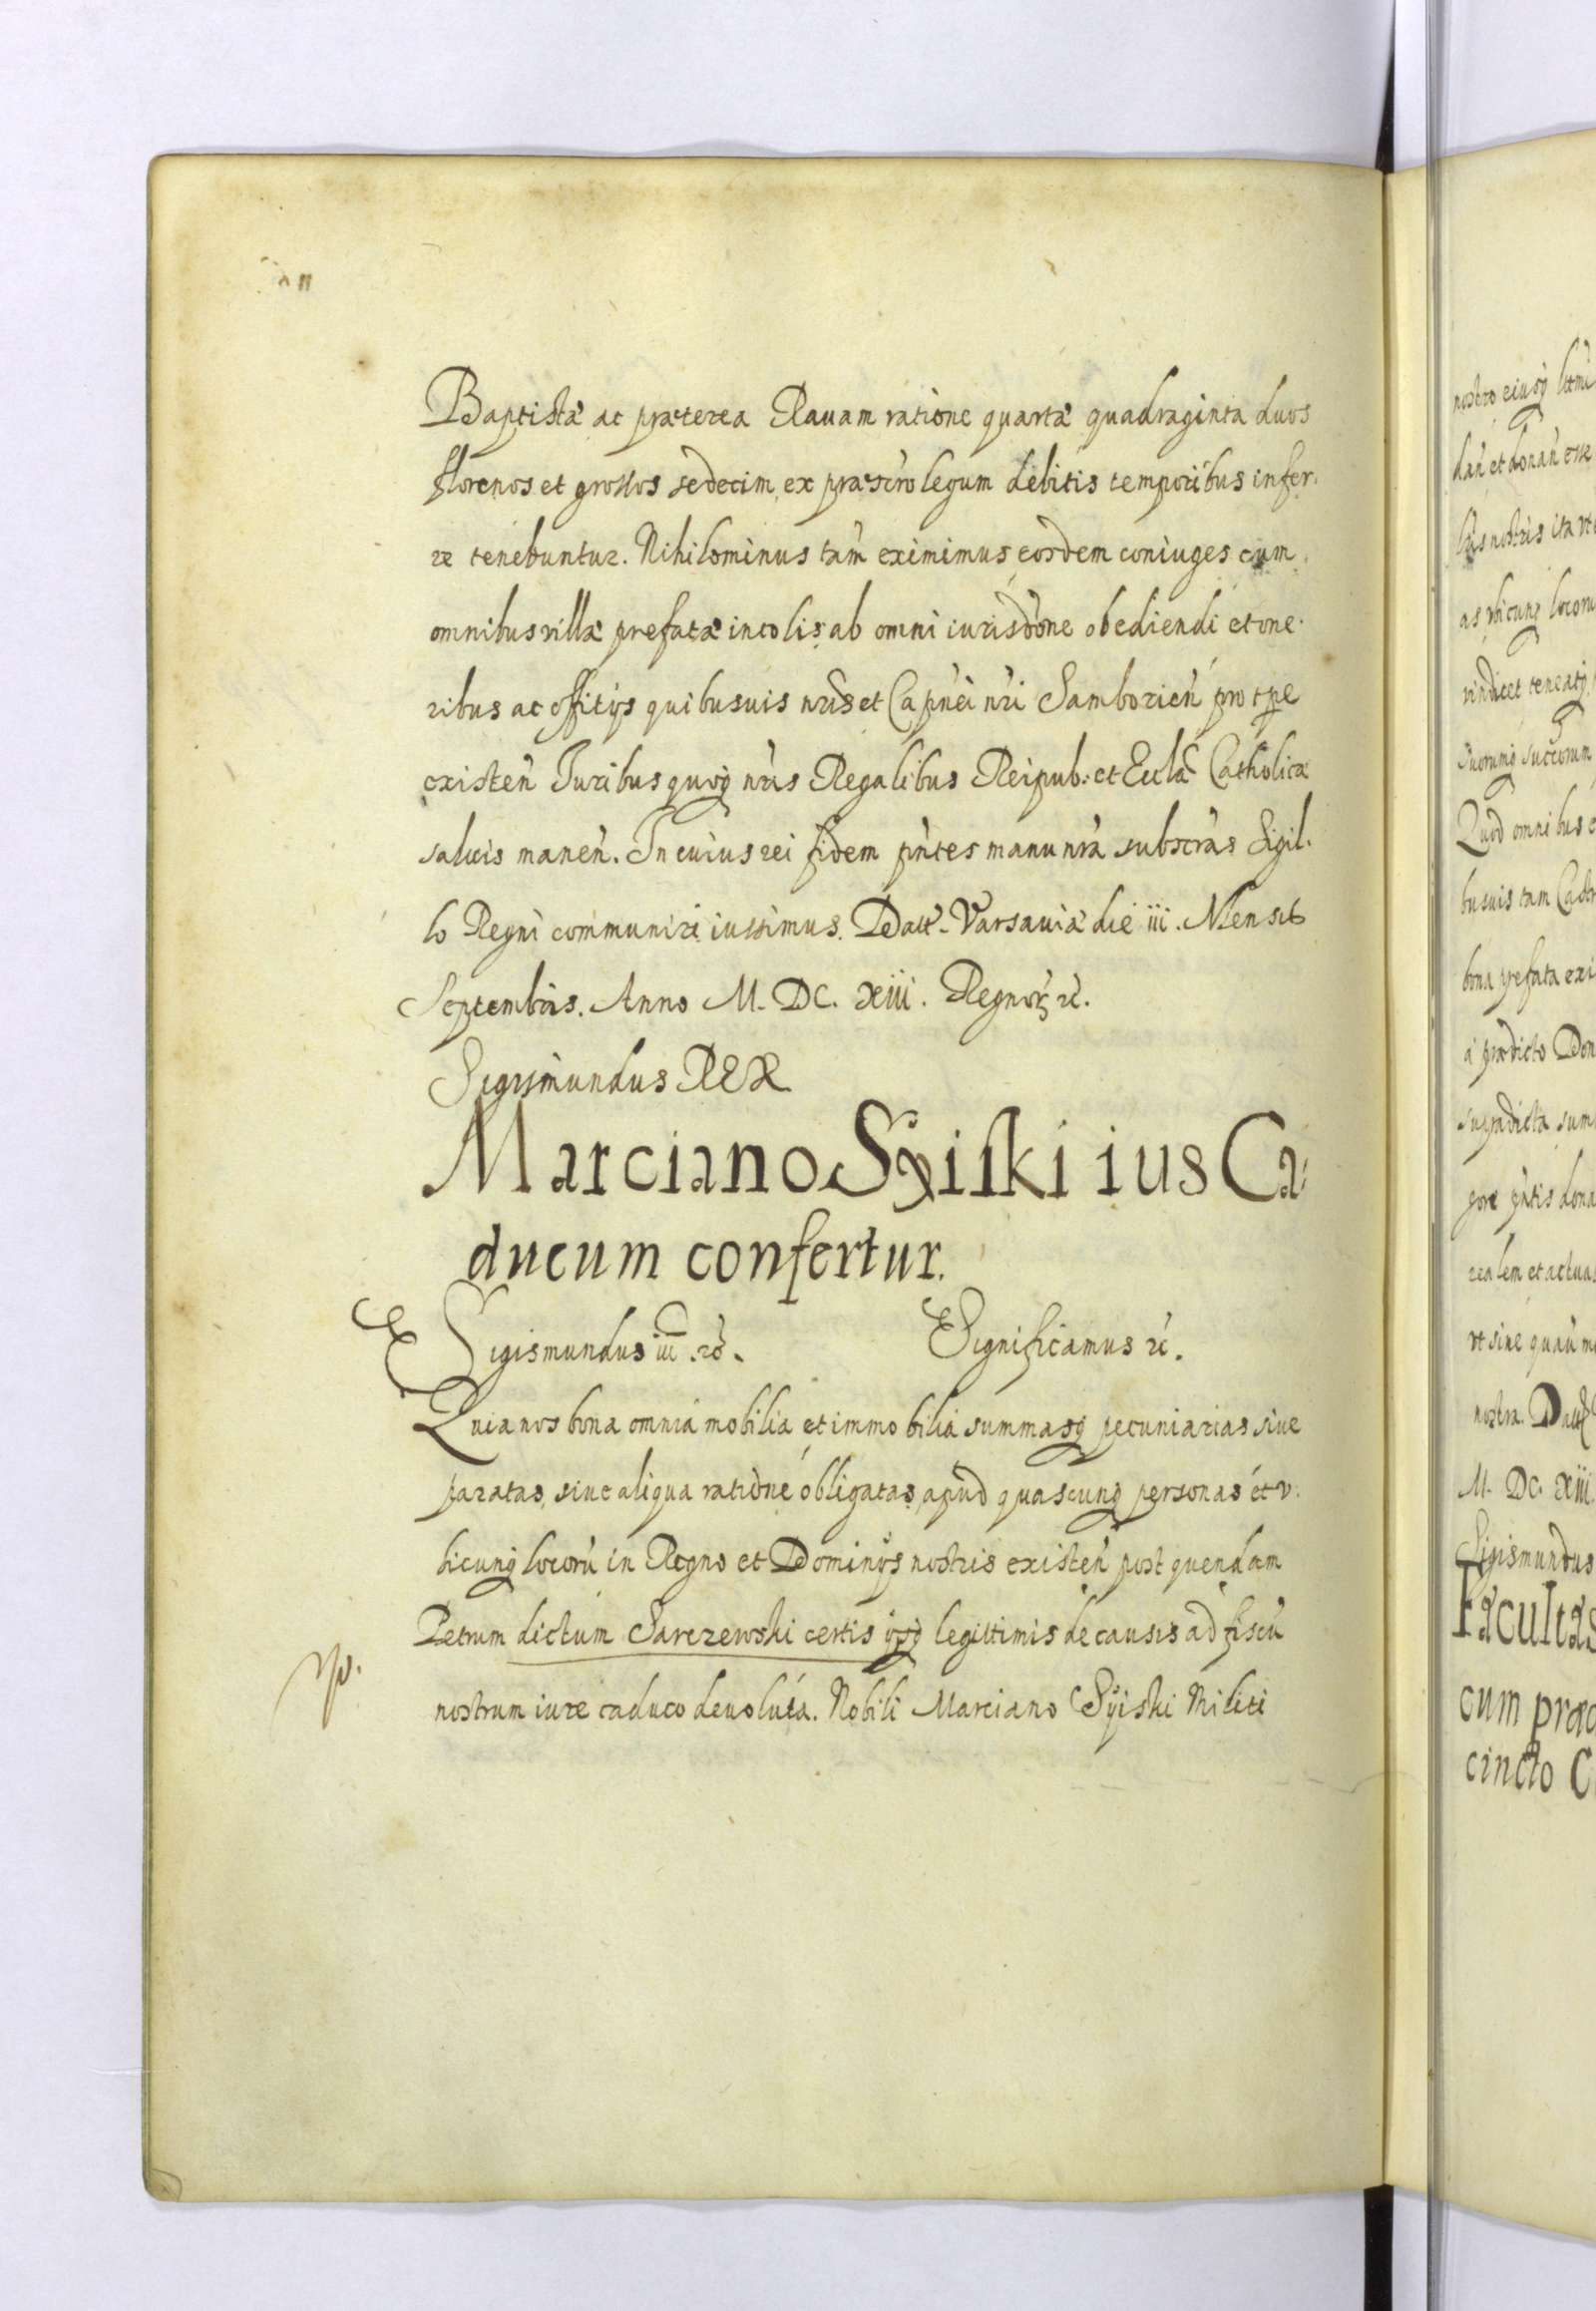 Baptistæ ac præterea Rauam ratione quartæ quadraginta duos
florenos et grossos sedecim, ex præscro legum debitis temporibus infer.
re tenebuntur. Nihilominus tam̃ eximimus eosdem coniuges cum
omnibus villæ prefatæ incolis ab omni iurisdõne obediendi et one.
ribus ac offitijs quibusuis nr̃is et Capnei nr̃i Samborien̄ pro tpe
existen̄ Juribus quoq nr̃is Regalibus Reipub: et Eccla Catholicæ
saluis manen̄. In cuius rei fidem pn̄tes manu nr̃a subscr̃as Sigil.
lo Regni communiri iussimus. Datt. Varsauiæ die iii. Mensis
Septembris. Anno M. DC. Xiii. Regnoꝝ ꝛc̃.
Sigismundus REX
Marciano Syiski ius Ca
ducum confertur.
Sigismundus iii ꝛc̃. Significamus ꝛc̃.
Quia nos bona omnia mobilia et immobilia summasq pecuniarias siue
paratas, siue aliqua ratione obligatas, apud quascunq personas et v.
bicunq locorũ in Regno et Dominijs nostris existen̄ post quendam
Petrum dictum Sarczewski certis ijsq legittimis de causis ad fiscũ
nostrum iure caduco deuoluta. Nobili Marciano Syiski Militi
nostro eiusq
dan̄ et donan̄ esse
nostris ita vt
as vbicunq locoru
vindicet
suorumq successorum
Quod omnibus
busuis tam
bona prefata
a prædicto Don
supradicta sum
pn̄tis dona
realem et actua
vt sine
nostra. Datt
M. DC. Xiii.
Sigismundus
Facultas
cum præd
cincto C